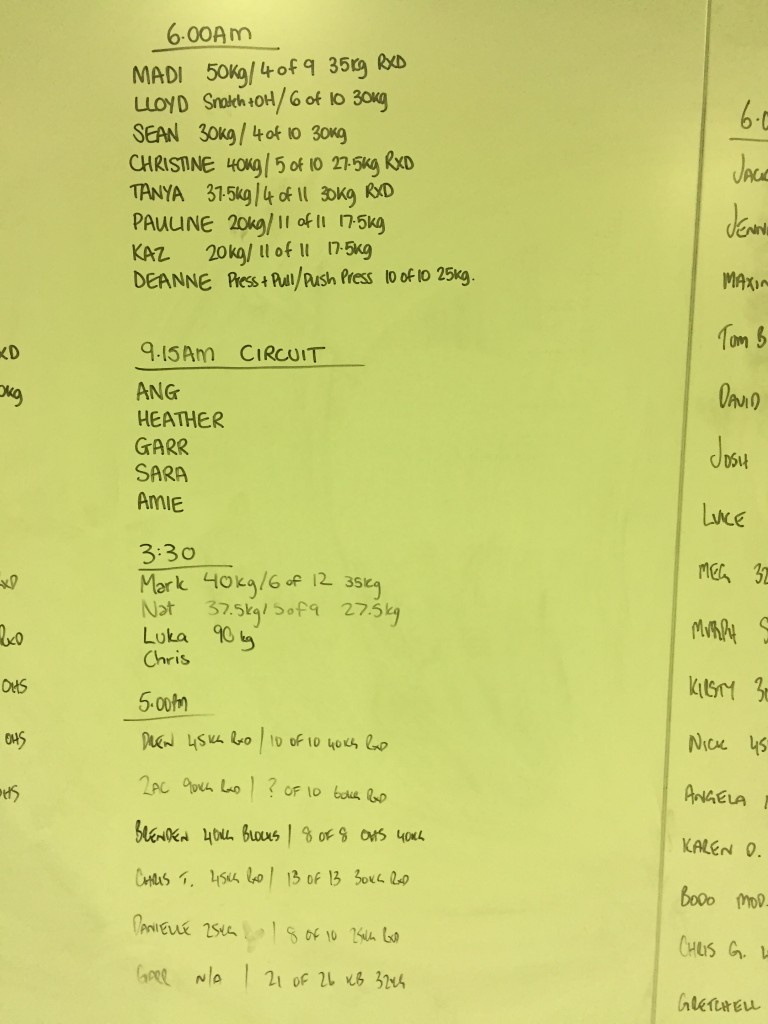 6.00AM
MADI 50kg/4 of 9 35kg RXD
LLOYD Snatch+OH/6 of 10 30kg
SEAN 30kg/4 of 10 30kg
CHRISTINE 40kg/5 of 10 27.5kg RXD
TANYA 37.5kg/4 of 11 30kg RXD
PAULINE 20kg/11 of 11 17.5kg
KAZ 20kg/11 of 11 17.5kg
DEANNE Press+Pull/Push Press 10 of 10 25kg.
9.15AM CIRCUIT
ANG
HEATHER
GARR
SARA
AMIE
3:30
Mark 40kg/6 of 12 35kg
Nat 37.5kg/5of9 27.5kg
Luka 90kg
Chris
5.00PM
DREN 45KG RXD | 10 OF 10 40KG RXD
ZAC 90KG RXD | ? OF 10 60KG RXD
BRENDEN 40KG BLOCKS | 8 OF 8 OHS 40KG
CHRIS T. 45KG RXD | 13 OF 13 30KG RXD
DANIELLE 25KG | 8 OF 10 25KG RXD
GARR N/A | 21 OF 26 KB 32KG
XD
0kg
RXD
RXD
OHS
OHS
OHS
6.0
JACK
JENN
MAXIN
TOM B
DAVID
JOSH
LUKE
MEG 32
MURPH
KIRSTY 3
NICK 45
ANGELA
KAREN D.
BODO MOD.
CHRIS G.
GRETCHELL